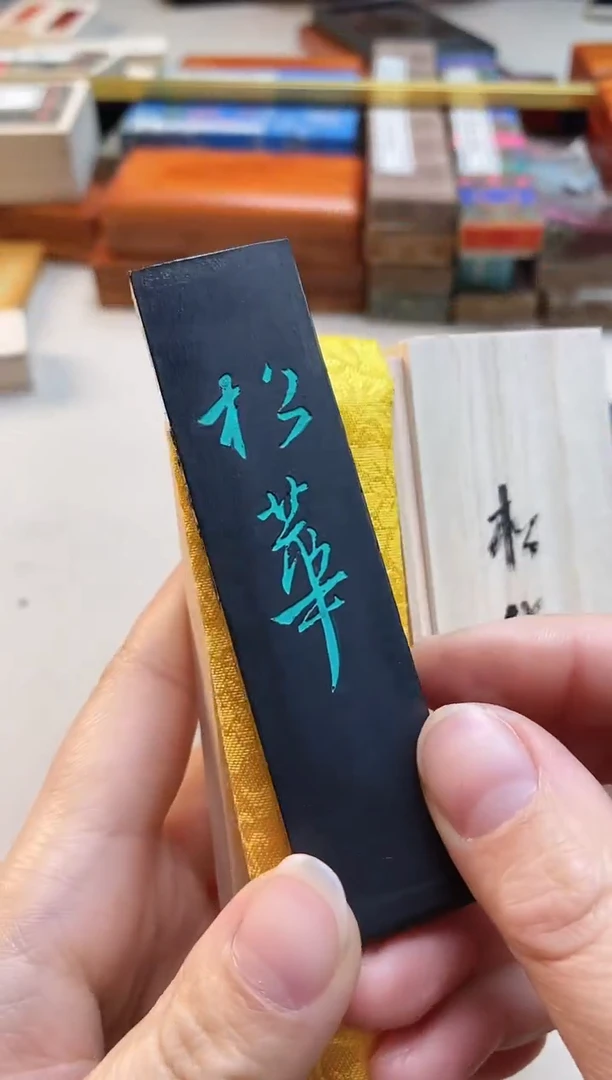 松華
松